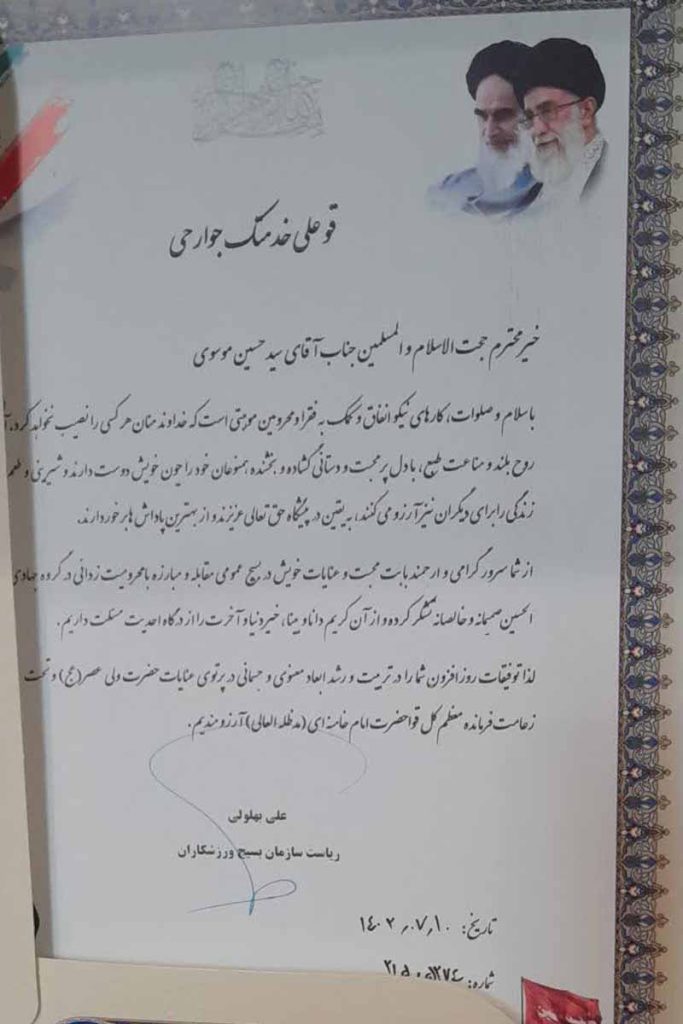 قو علی خدمتک جوارحی
خیر محترم حجت الاسلام و المسلمین جناب آقای سید حسین موسوی
با سلام و صلوات، کارهای نیکو انفاق و کمک به فقرا و محرومین موهبتی است که خداوند منان هر کسی را نصیب نخواهد کرد،
روح بلند و مناعت طبع، با دل پر محبت و دستانی گشاده و بخشنده همنوعان خود را چون خویش دوست دارند و شیرینی و طعم
زندگی را برای دیگران نیز آرزو می کنند، به یقین در پیشگاه حق تعالی عزیزند و از بهترین پاداش ها برخوردارند.
از شما سرور گرامی و ارجمند بابت محبت و عنایات خویش در بسیج عمومی مقابله و مبارزه با محرومیت زدائی در گروه جهادی
الحسین صمیمانه و خالصانه تشکر کرده و از آن کریم دانا و بینا، خیر دنیا و آخرت را از درگاه احدیت مسئلت داریم.
لذا توفیقات روز افزون شما را در تربیت و رشد ابعاد معنوی و جسمانی در پرتوی عنایات حضرت ولی عصر(عج) و تحت
زعامت فرمانده معظم کل قوا حضرت امام خامنه ای (مدظله العالی) آرزومندیم.
علی بهلولی
ریاست سازمان بسیج ورزشکاران
تاریخ: ۱۴۰۲,۰۷,۱۰
شماره: